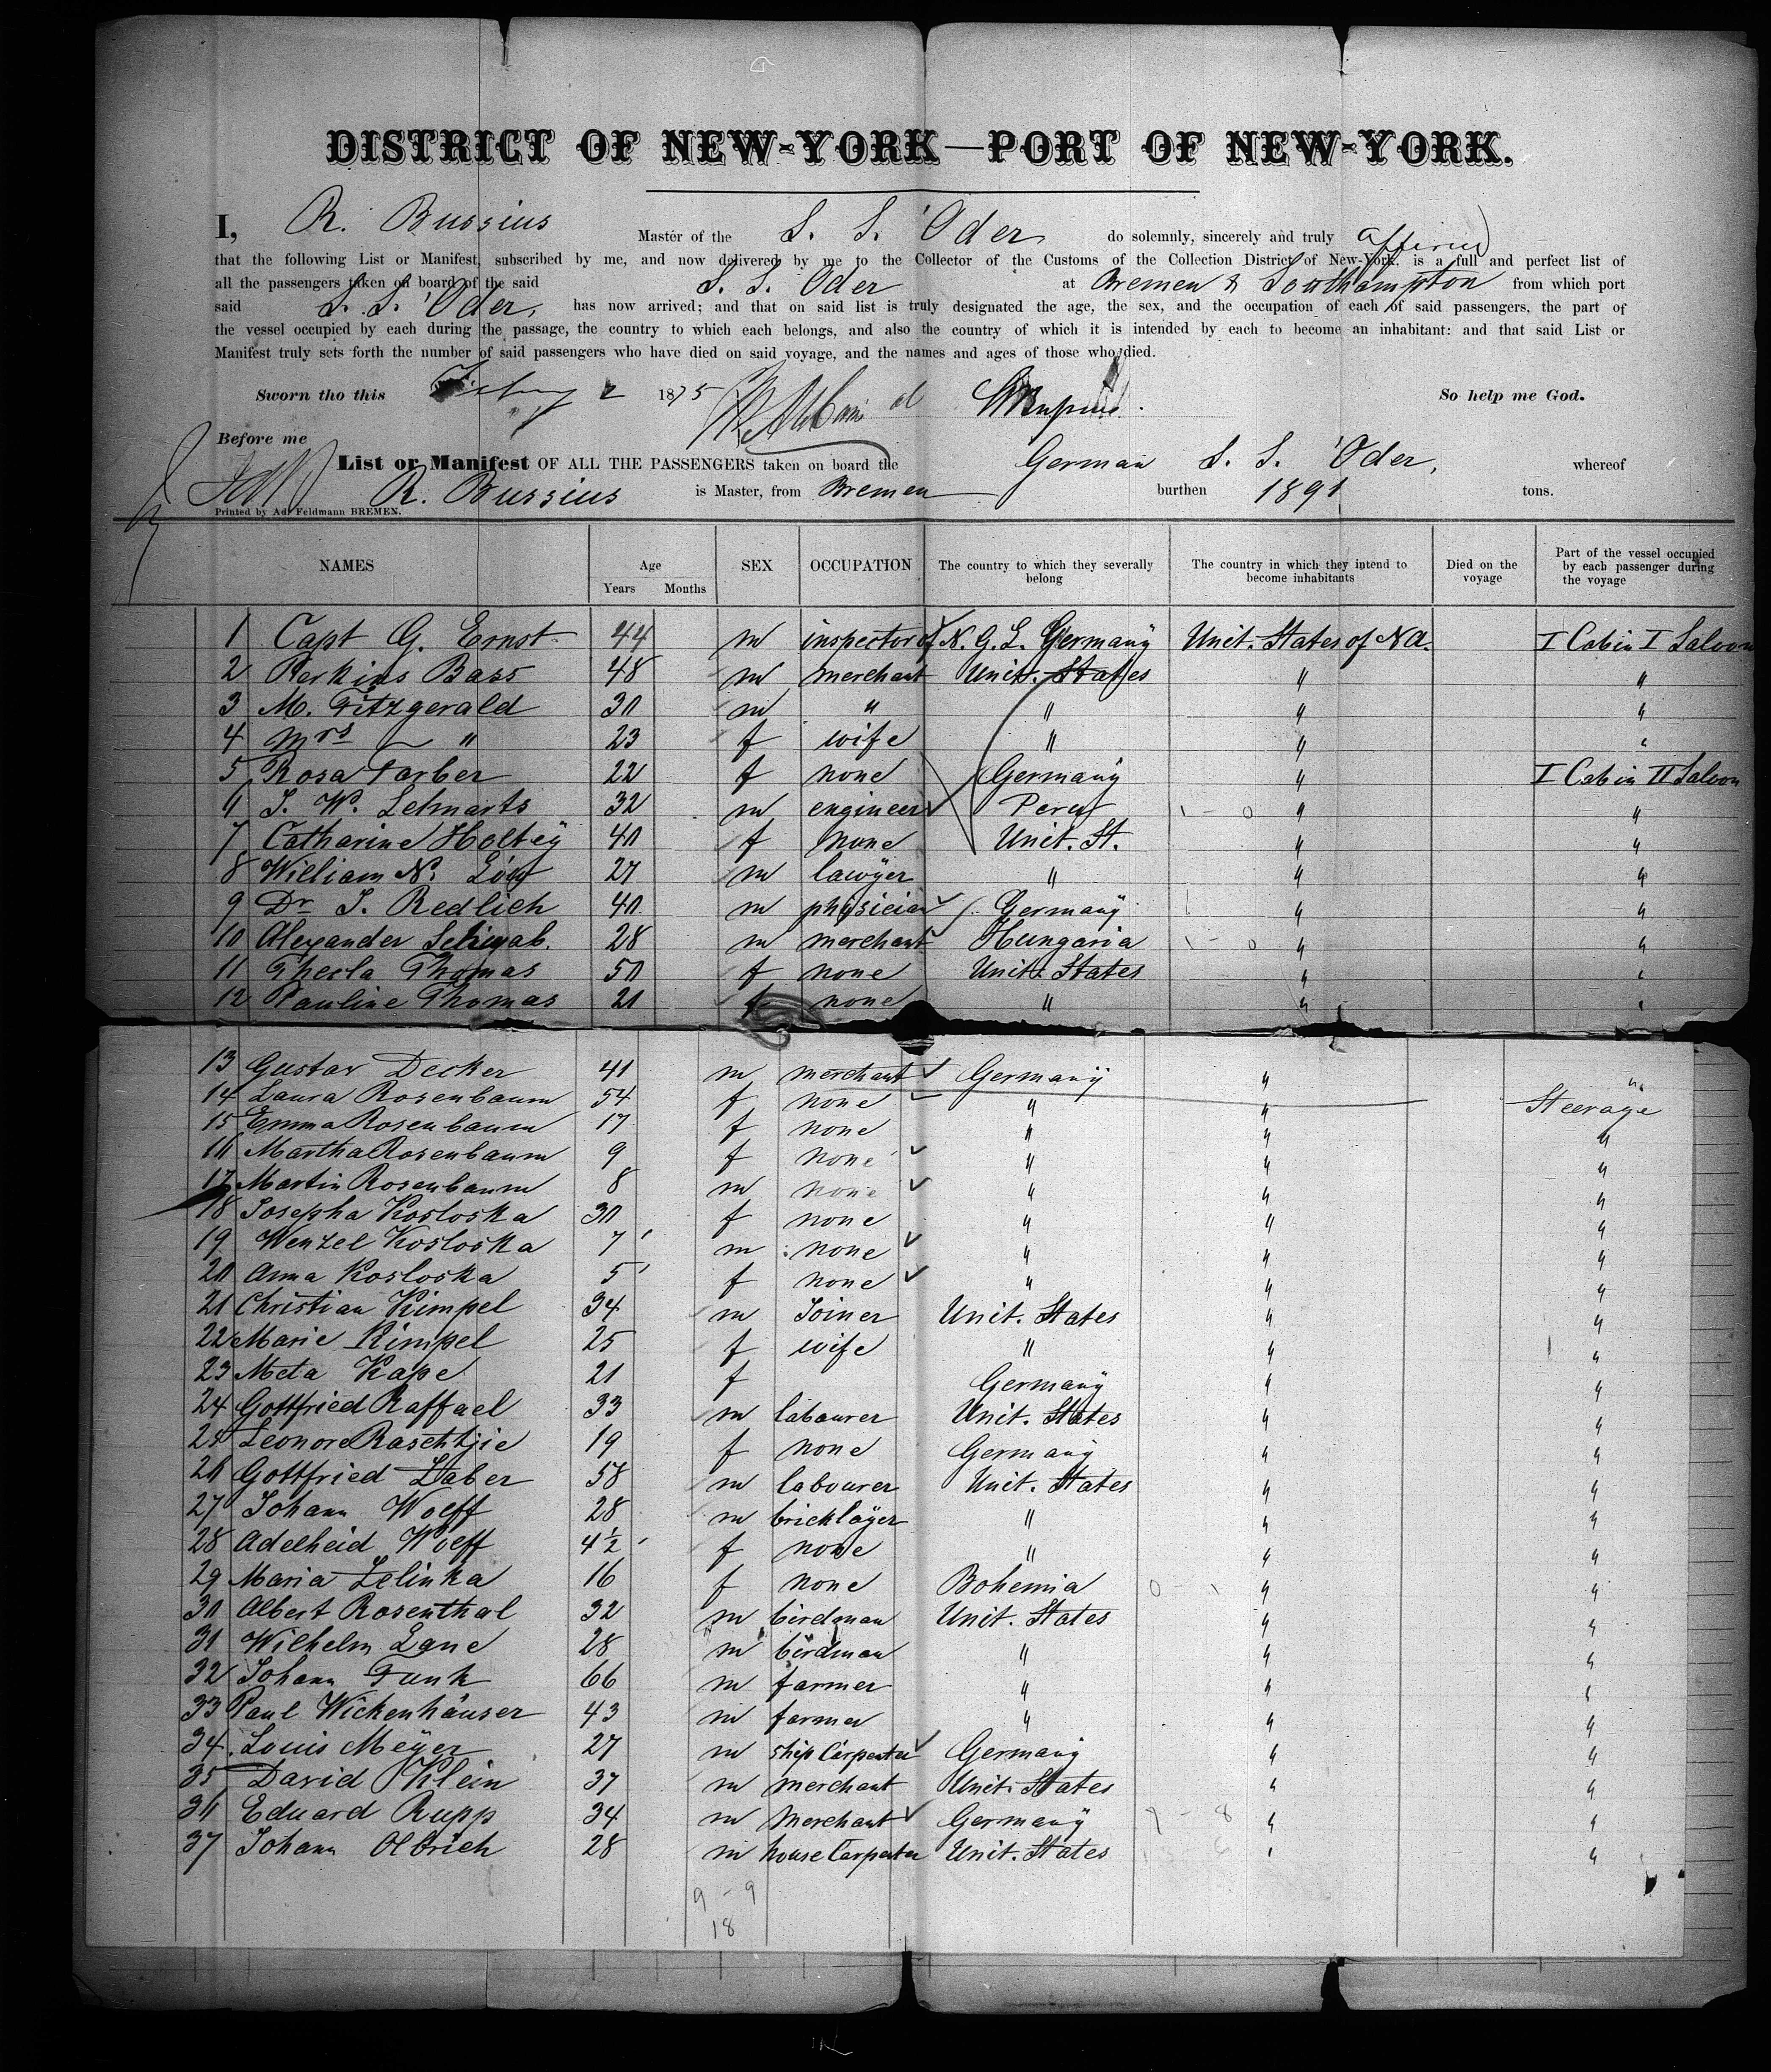 DISTRICT OF NEW-YORK—PORT OF NEW-YORK.
I, R. Bussius Master of the S. S. 'Oder do solemnly, sincerely and truly affirm
that the following List or Manifest, subscribed by me, and now delivered by me to the Collector of the Customs of the Collection District of New-York. is a full and perfect list of
all the passengers taken on board of the said S. S. Oder at Bremen & Southampton from which port
said S. S. 'Oder, has now arrived; and that on said list is truly designated the age, the sex, and the occupation of each of said passengers, the part of
the vessel occupied by each during the passage, the country to which each belongs, and also the country of which it is intended by each to become an inhabitant: and that said List or
Manifest truly sets forth the number of said passengers who have died on said voyage, and the names and ages of those who died.
Sworn tho this 2 1875 So help me God.
Before me
List or Manifest OF ALL THE PASSENGERS taken on board the German S. S. 'Oder, whereof
R. Bussius is Master, from Bremen burthen 1891 tons.
Printed by Ad. Feldmann BREMEN.
NAMES Age Years Months SEX OCCUPATION The country to which they severally belong The country in which they intend to become inhabitants Died on the voyage Part of the vessel occupied by each passenger during the voyage
1 Capt G. Ernst 44 m inspector of N. G. L. Germany Unit. States of NA. I Cabin I Saloon
2 Perkins Bass 48 m merchant Unit. States " "
3 M. Fitzgerald 30 m " " " "
4 Mrs " 23 f wife " " "
5 Rosa Farber 22 f none Germany " I Cabin II Saloon
6 J. W. Lehnarts 32 m engineer Peru " "
7 Catharine Holtey 40 f none Unit. St. " "
8 William N. Löw 27 m lawyer " " "
9 Dr J. Redlich 40 m physician Germany " "
10 Alexander Schwab. 28 m merchant Hungaria " "
11 Thecla Thomas 50 f none Unit. States " "
12 Pauline Thomas 21 f none " " "
13 Gustav Decker 41 m merchant Germany " "
14 Laura Rosenbaum 54 f none " " Steerage
15 Emma Rosenbaum 17 f none " " "
16 Martha Rosenbaum 9 f none " " "
17 Martin Rosenbaum 8 m none " " "
18 Josepha Kosloska 30 f none " " "
19 Wenzel Kosloska 7 m none " " "
20 Anna Kosloska 5 f none " " "
21 Christian Kimpel 34 m Joiner Unit. States " "
22 Marie Kimpel 25 f wife " " "
23 Meta Kape 21 f Germany " "
24 Gottfried Raffael 33 m labourer Unit. States " "
25 Leonore Raschtjie 19 f none Germany " "
26 Gottfried Laber 58 m labourer Unit. States " "
27 Johann Wolff 28 m bricklayer " " "
28 Adelheid Wolff 4½ f none " " "
29 Maria Zelinka 16 f none Bohemia " "
30 Albert Rosenthal 32 m birdman Unit. States " "
31 Wilhelm Lane 28 m birdman " " "
32 Johann Funk 66 m farmer " " "
33 Paul Wickenhäuser 43 m farmer " " "
34 Louis Meyer 27 m ship Carpenter Germany " "
35 David Klein 37 m merchant Unit. States " "
36 Eduard Rupp 34 m Merchant Germany " "
37 Johann Olbrich 28 m house Carpenter Unit. States " "
9 - 9
18